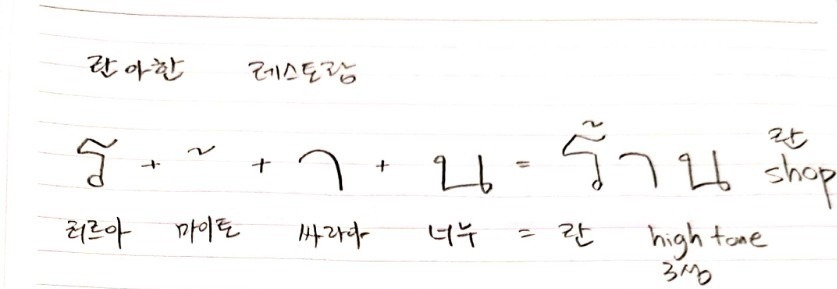 란아한 레스토랑
ร + ้ + า + น = ร้าน 란 shop
러르아 마이토 싸라아 너누 = 란 high tone
3성